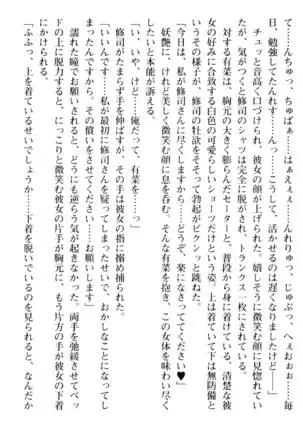 て……んちゅっ、ちゅぱぁ……はぁえぇぇ……んれりゅっ、じゅぶっ、へぇおぉぉ……毎
日、勉強してたんれす……んっ……こうして、活かせるのは遅くなりましたけど――」
チュッと音高く口づけられ、彼女の顔が上げられた。嬉しそうに微笑む顔に見惚れてい
たが、気づくと修司のシャツは完全に脱がされ、トランクス一枚にされている。
対する有菜は、胸元の大きく膨らんだセーターと、普段から身に着けている、清楚な彼
女の好みに合致する白色の可愛らしいショーツだけという姿。上は着ていて下は無防備と
いうその様子が、修司の牡欲をそそって勃起がビクンッと跳ねた。
「今日は、私が修司さんに尽くしますから……どうぞ、楽になさってください♥」
妖艶に、けれど美しく微笑む顔に息を呑む。そんな有菜を抱き、この女体を味わい尽く
したいと本能が訴える。
「い、いや、けど……俺だって、有菜を……っ」
修司がたまらず手を伸ばすが、その手は彼女の指に搦め捕られた。
「いいんです……私が最初に修司さんを疑ってしまったせいで、おかしなことになってし
まったんですから。その償いをさせてください……お願いします」
濡れた瞳でお願いされると、どうにも逆らう気が起きなかった。両手を弛緩させてベッ
ドの上に脱力すると、にっこりと微笑む彼女の片手が胸元に、もう片方の手が彼女の下着
にかけられる。
「ふふっ、上を着ているせいでしょうか……下着を脱いでいるのを見られると、なんだか